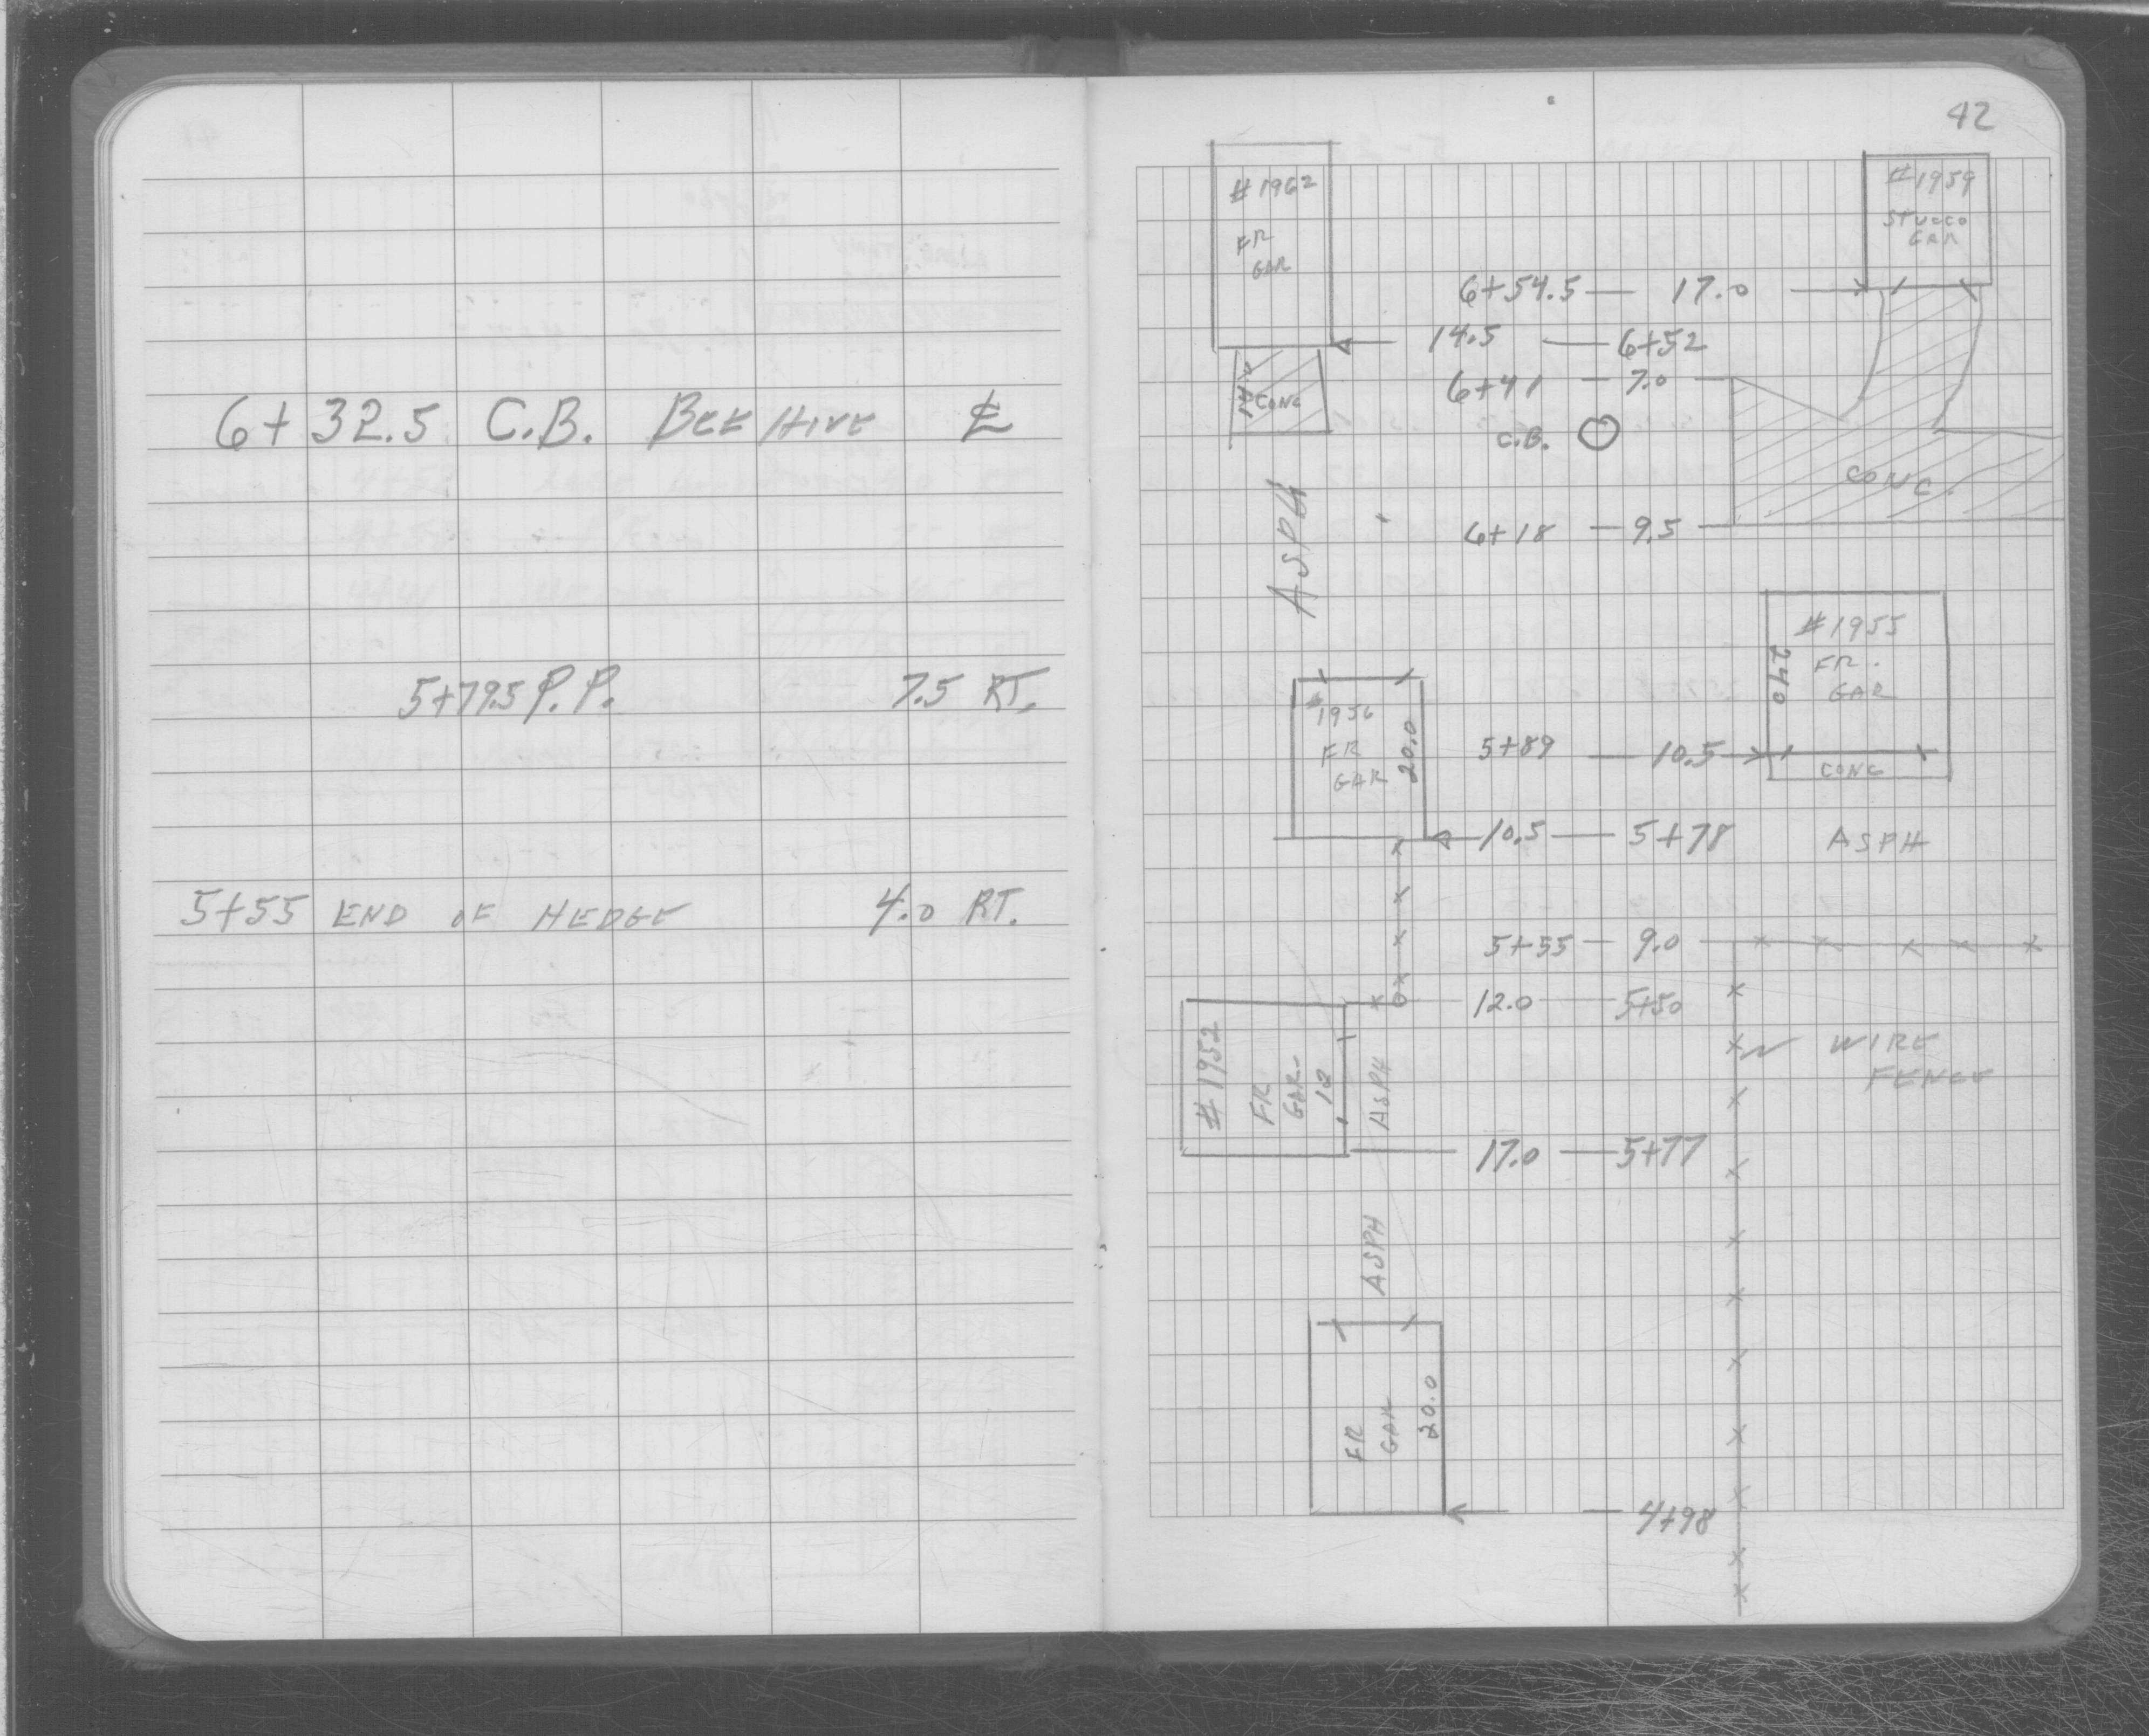 6+32.5 C.B. BEEHIVE ℄
5+79.5 P.P. 7.5 RT.
5+55 END OF HEDGE 4.0 RT.
42
#1962
FR
GAR
#1959
STUCCO
GAR
6+54.5 — 17.0
14.5 — 6+52
6+41 — 7.0
14.0
CONC
C.B.
CONC.
ASPH
6+18 — 9.5
#1955
FR.
GAR
24.0
#
1956
FR
GAR
20.0
5+89 — 10.5
CONC
10.5 — 5+78
ASPH
5+55 — 9.0
12.0 — 5+50
#1952
FR
GAR
18
ASPH
WIRE
FENCE
17.0 — 5+77
ASPH
FR
GAR
20.0
— 4+98